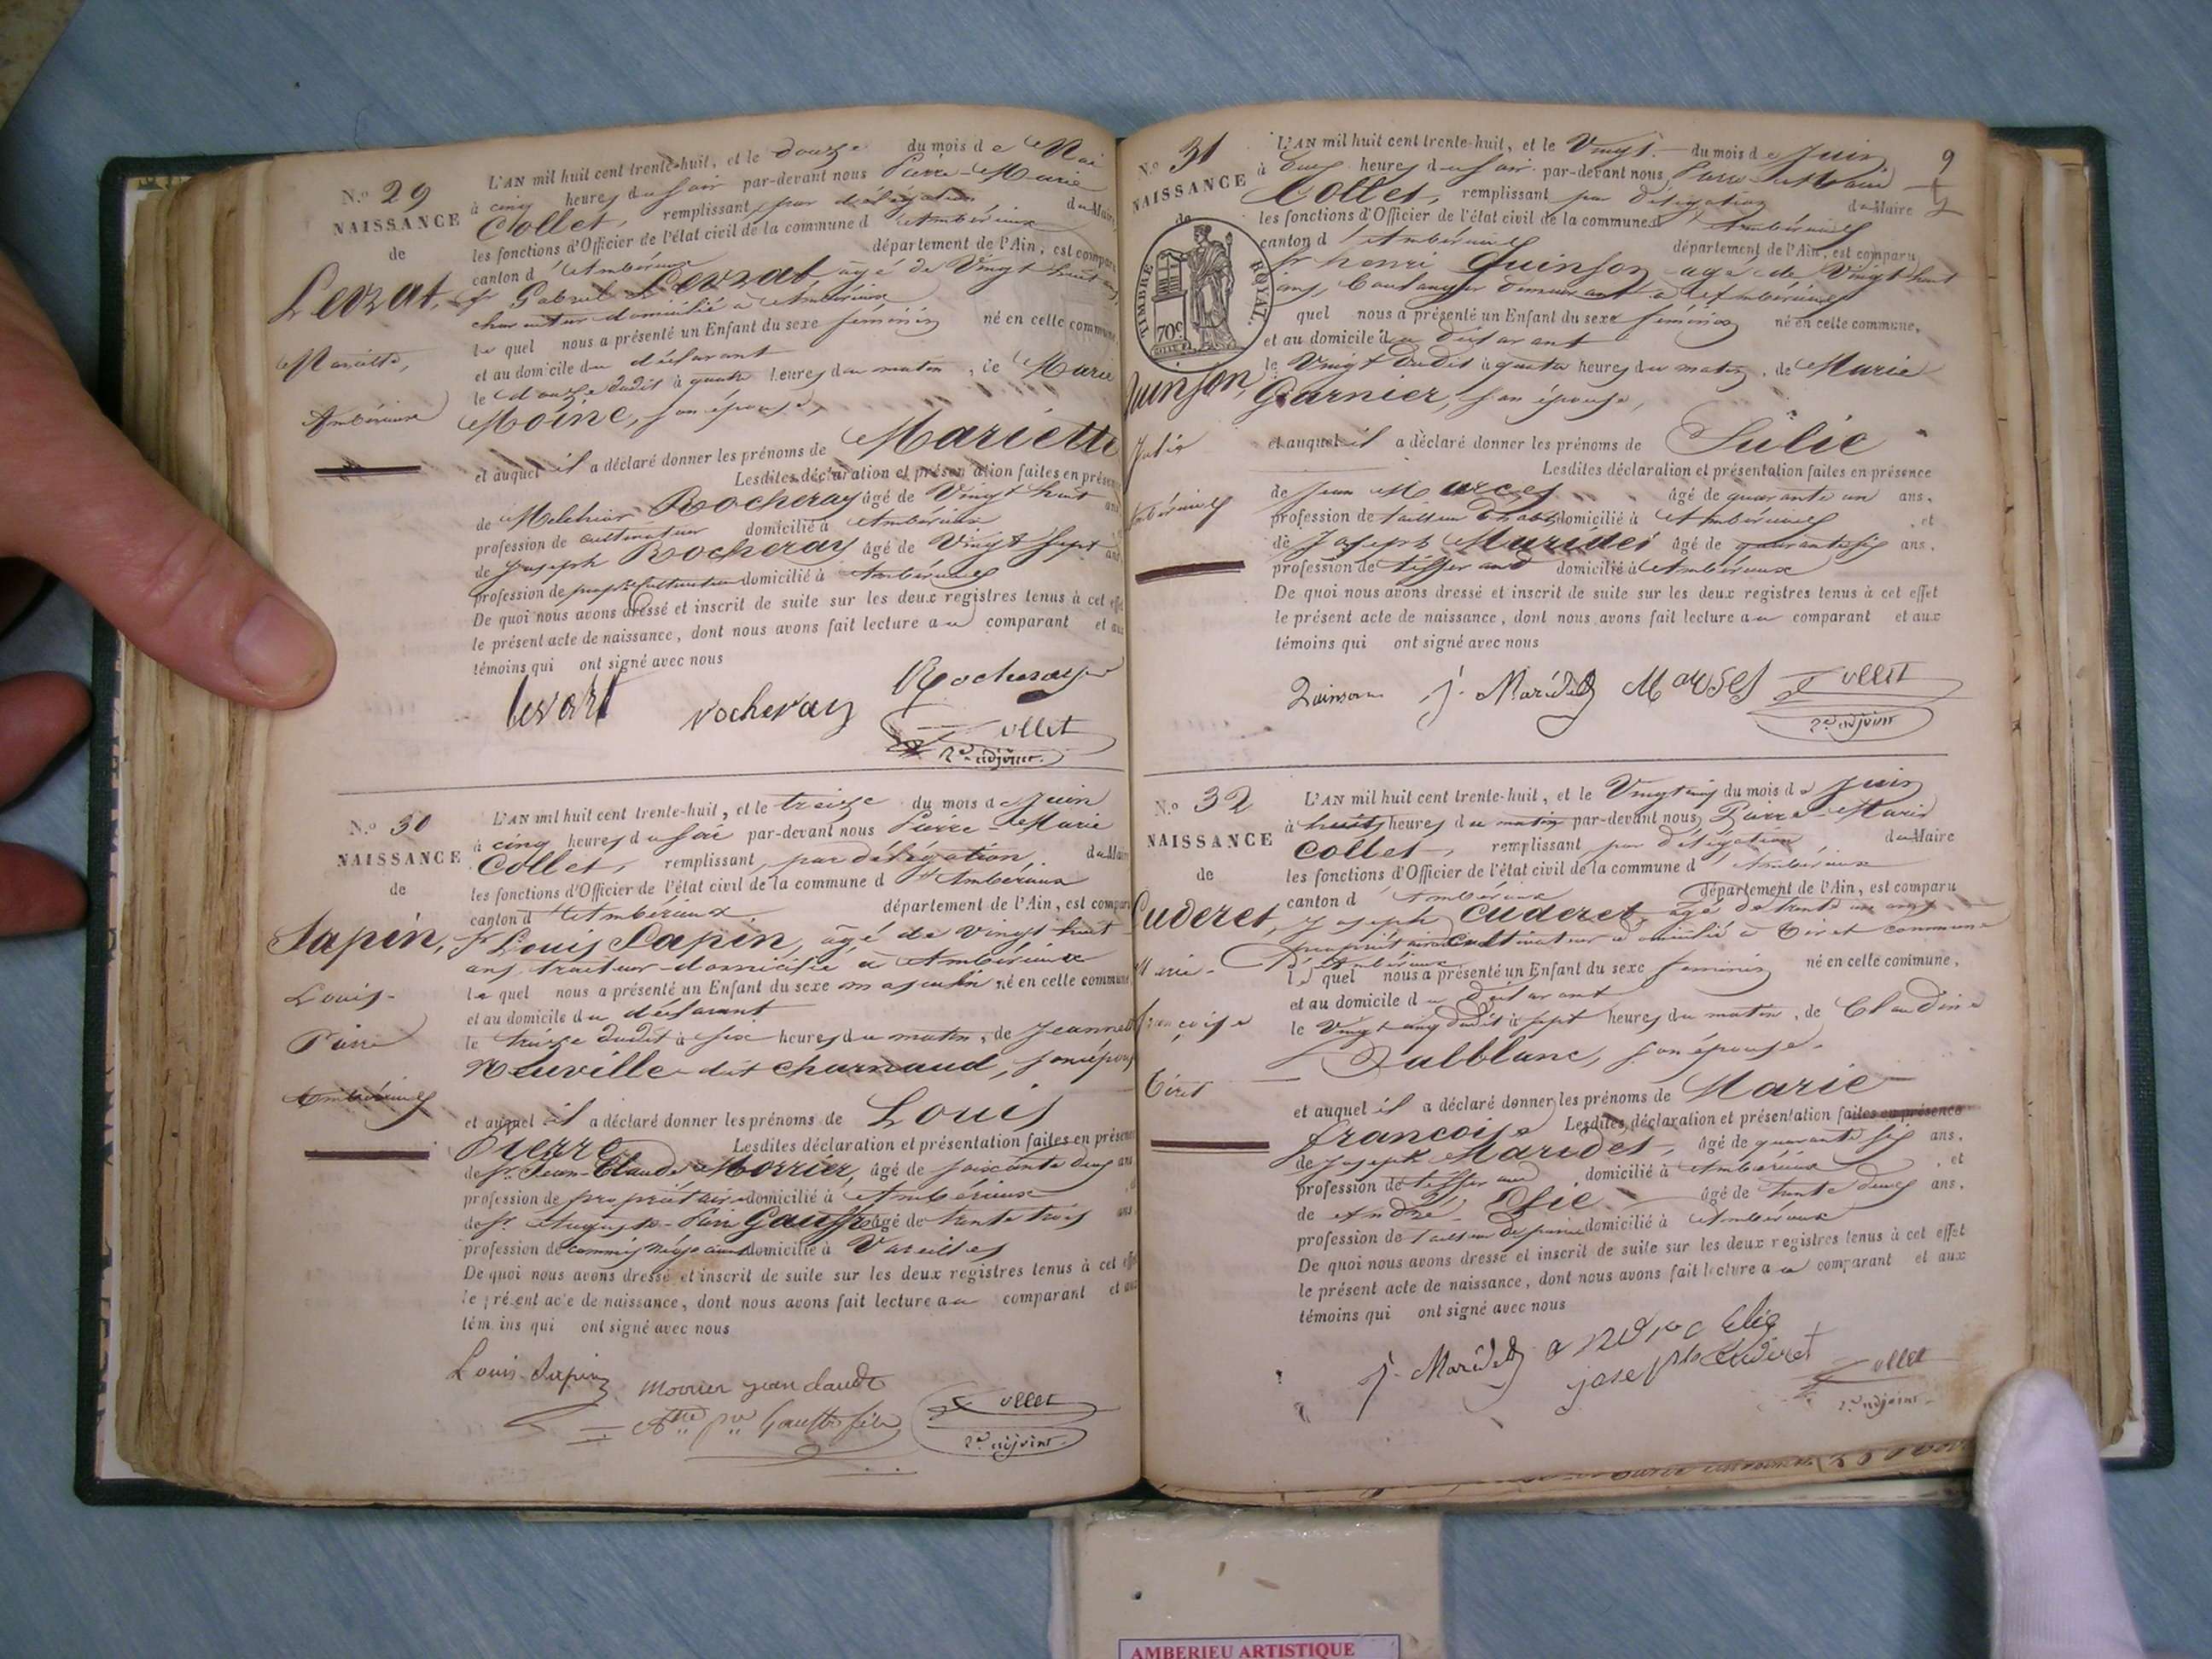 N.o 29
NAISSANCE
de
Levrat,
Mariette,
Ambérieux
L'AN mil huit cent trente-huit, et le douze du mois de Mai
à cinq heures du soir par-devant nous Pierre-Marie
Collet, remplissant, par délégation du Maire
les fonctions d'Officier de l'état civil de la commune d'Ambérieux
canton d'Ambérieux département de l'Ain, est comparu
sr Gabriel Levrat, âgé de Vingt huit ans,
domicilié à Ambérieux
lequel nous a présenté un Enfant du sexe féminin né en cette commune,
et au domicile du déclarant
le douze dudit à quatre heures du matin, de Marie
Moine, son épouse,
et auquel il a déclaré donner les prénoms de Mariette
Lesdites déclaration et présentation faites en présence
de Melchior Rocheray âgé de Vingt huit ans
profession de cultivateur domicilié à Ambérieux
de Joseph Rocheray âgé de Vingt sept ans
profession de cultivateur domicilié à Ambérieux
De quoi nous avons dressé et inscrit de suite sur les deux registres tenus à cet effet
le présent acte de naissance, dont nous avons fait lecture au comparant et aux
témoins qui ont signé avec nous
levrat rocheray Rocheray
Collet
2e adjoint.
N.o 30
NAISSANCE
de
Sapin,
Louis-
Pierre
Ambérieux
L'AN mil huit cent trente-huit, et le treize du mois de Juin
à cinq heures du soir par-devant nous Pierre-Marie
Collet, remplissant, par délégation, du Maire
les fonctions d'Officier de l'état civil de la commune d'Ambérieux
canton d'Ambérieux département de l'Ain, est comparu
sr Louis Sapin, âgé de vingt huit
ans, traiteur domicilié à Ambérieux
lequel nous a présenté un Enfant du sexe masculin né en cette commune
et au domicile du déclarant
le treize dudit à six heures du matin, de Jeannette
Neuville dit Charnaud, son épouse
et auquel il a déclaré donner les prénoms de Louis
Pierre Lesdites déclaration et présentation faites en présence
de sr. Jean-Claude Morrier, âgé de soixante deux ans
profession de propriétaire domicilié à Ambérieux
de sr Auguste- Gauffre âgé de trente trois ans
profession de commis négociant domicilié à Vareilles
De quoi nous avons dressé et inscrit de suite sur les deux registres tenus à cet effet
le présent acte de naissance, dont nous avons fait lecture au comparant et aux
témoins qui ont signé avec nous
Louis Sapin morrier jean claude
Collet
2e adjoint.
9
N.o 31
NAISSANCE
de
TIMBRE ROYAL.
70c
Quinson,
Julie
Ambérieux
L'AN mil huit cent trente-huit, et le Vingt du mois de Juin
à heures du soir par-devant nous Pierre-Marie
Collet, remplissant par délégation du Maire
les fonctions d'Officier de l'état civil de la commune d'Ambérieux
canton d'Ambérieux département de l'Ain, est comparu
sr henri Quinson âgé de Vingt huit
ans, boulanger demeurant à Ambérieux
quel nous a présenté un Enfant du sexe féminin né en cette commune,
et au domicile du déclarant
le Vingt dudit à quatre heures du matin, de Marie
Garnier, son épouse,
et auquel il a déclaré donner les prénoms de Julie
Lesdites déclaration et présentation faites en présence
de Jean âgé de quarante un ans,
profession de tailleur d'habits domicilié à Ambérieux, et
de Joseph Maridet âgé de quarante six ans,
profession de tisserand domicilié à Ambérieux
De quoi nous avons dressé et inscrit de suite sur les deux registres tenus à cet effet
le présent acte de naissance, dont nous avons fait lecture au comparant et aux
témoins qui ont signé avec nous
Quinson J. Maridet Collet
2e adjoint
N.o 32
NAISSANCE
de
Cuderet,
Marie-
françoise
Tiret
L'AN mil huit cent trente-huit, et le Vingt cinq du mois de Juin
à huit heures du matin par-devant nous Pierre-Marie
Collet, remplissant par délégation du Maire
les fonctions d'Officier de l'état civil de la commune d'Ambérieux
canton d'Ambérieux département de l'Ain, est comparu
Joseph Cuderet, âgé de trente un ans
propriétaire cultivateur domicilié à Tiret commune
d'Ambérieux
lequel nous a présenté un Enfant du sexe féminin né en cette commune,
et au domicile du déclarant
le Vingt cinq dudit à sept heures du matin, de Claudine
son épouse.
et auquel il a déclaré donner les prénoms de Marie
françoise Lesdites déclaration et présentation faites en présence
de Joseph Maridet, âgé de quarante six ans,
profession de tisserand domicilié à Ambérieux, et
de André Elie âgé de trente deux ans,
profession de tailleur de pierre domicilié à Ambérieux
De quoi nous avons dressé et inscrit de suite sur les deux registres tenus à cet effet
le présent acte de naissance, dont nous avons fait lecture au comparant et aux
témoins qui ont signé avec nous
J. Maridet andre Elie
joseph Cuderet
Collet
2e adjoint.
AMBERIEU ARTISTIQUE